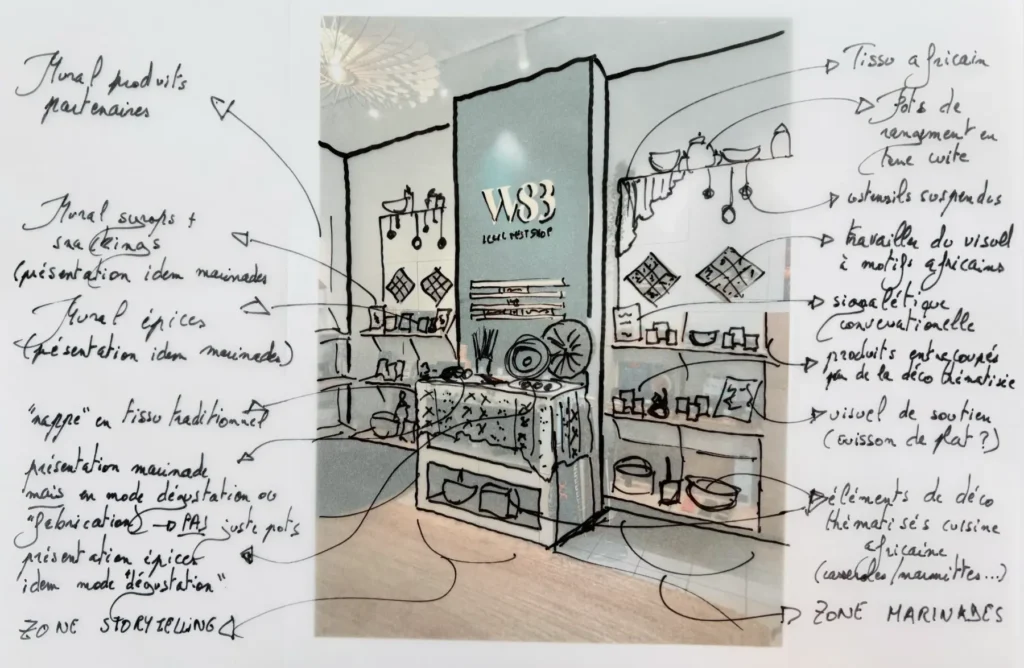 Mural produits
partenaires
Mural surops +
snackings
(présentation idem marinades)
Mural épices
(présentation idem marinades)
"nappe" en tissu traditionnel
présentation marinade
mais en mode dégustation ou
"fabrication" → PAS juste pots
présentation épices
idem mode "dégustation"
ZONE STORYTELLING
W83
Tissu africain
Pots de
rangement en
terre cuite
ustensils suspendus
travailler du visuel
à motifs africains
signalétique
conversationelle
produits entrecoupés
par de la déco thématisée
visuel de soutien
(cuisson de plat ?)
éléments de déco
thématisés cuisine
africaine
(casseroles/marmittes...)
ZONE MARINADES